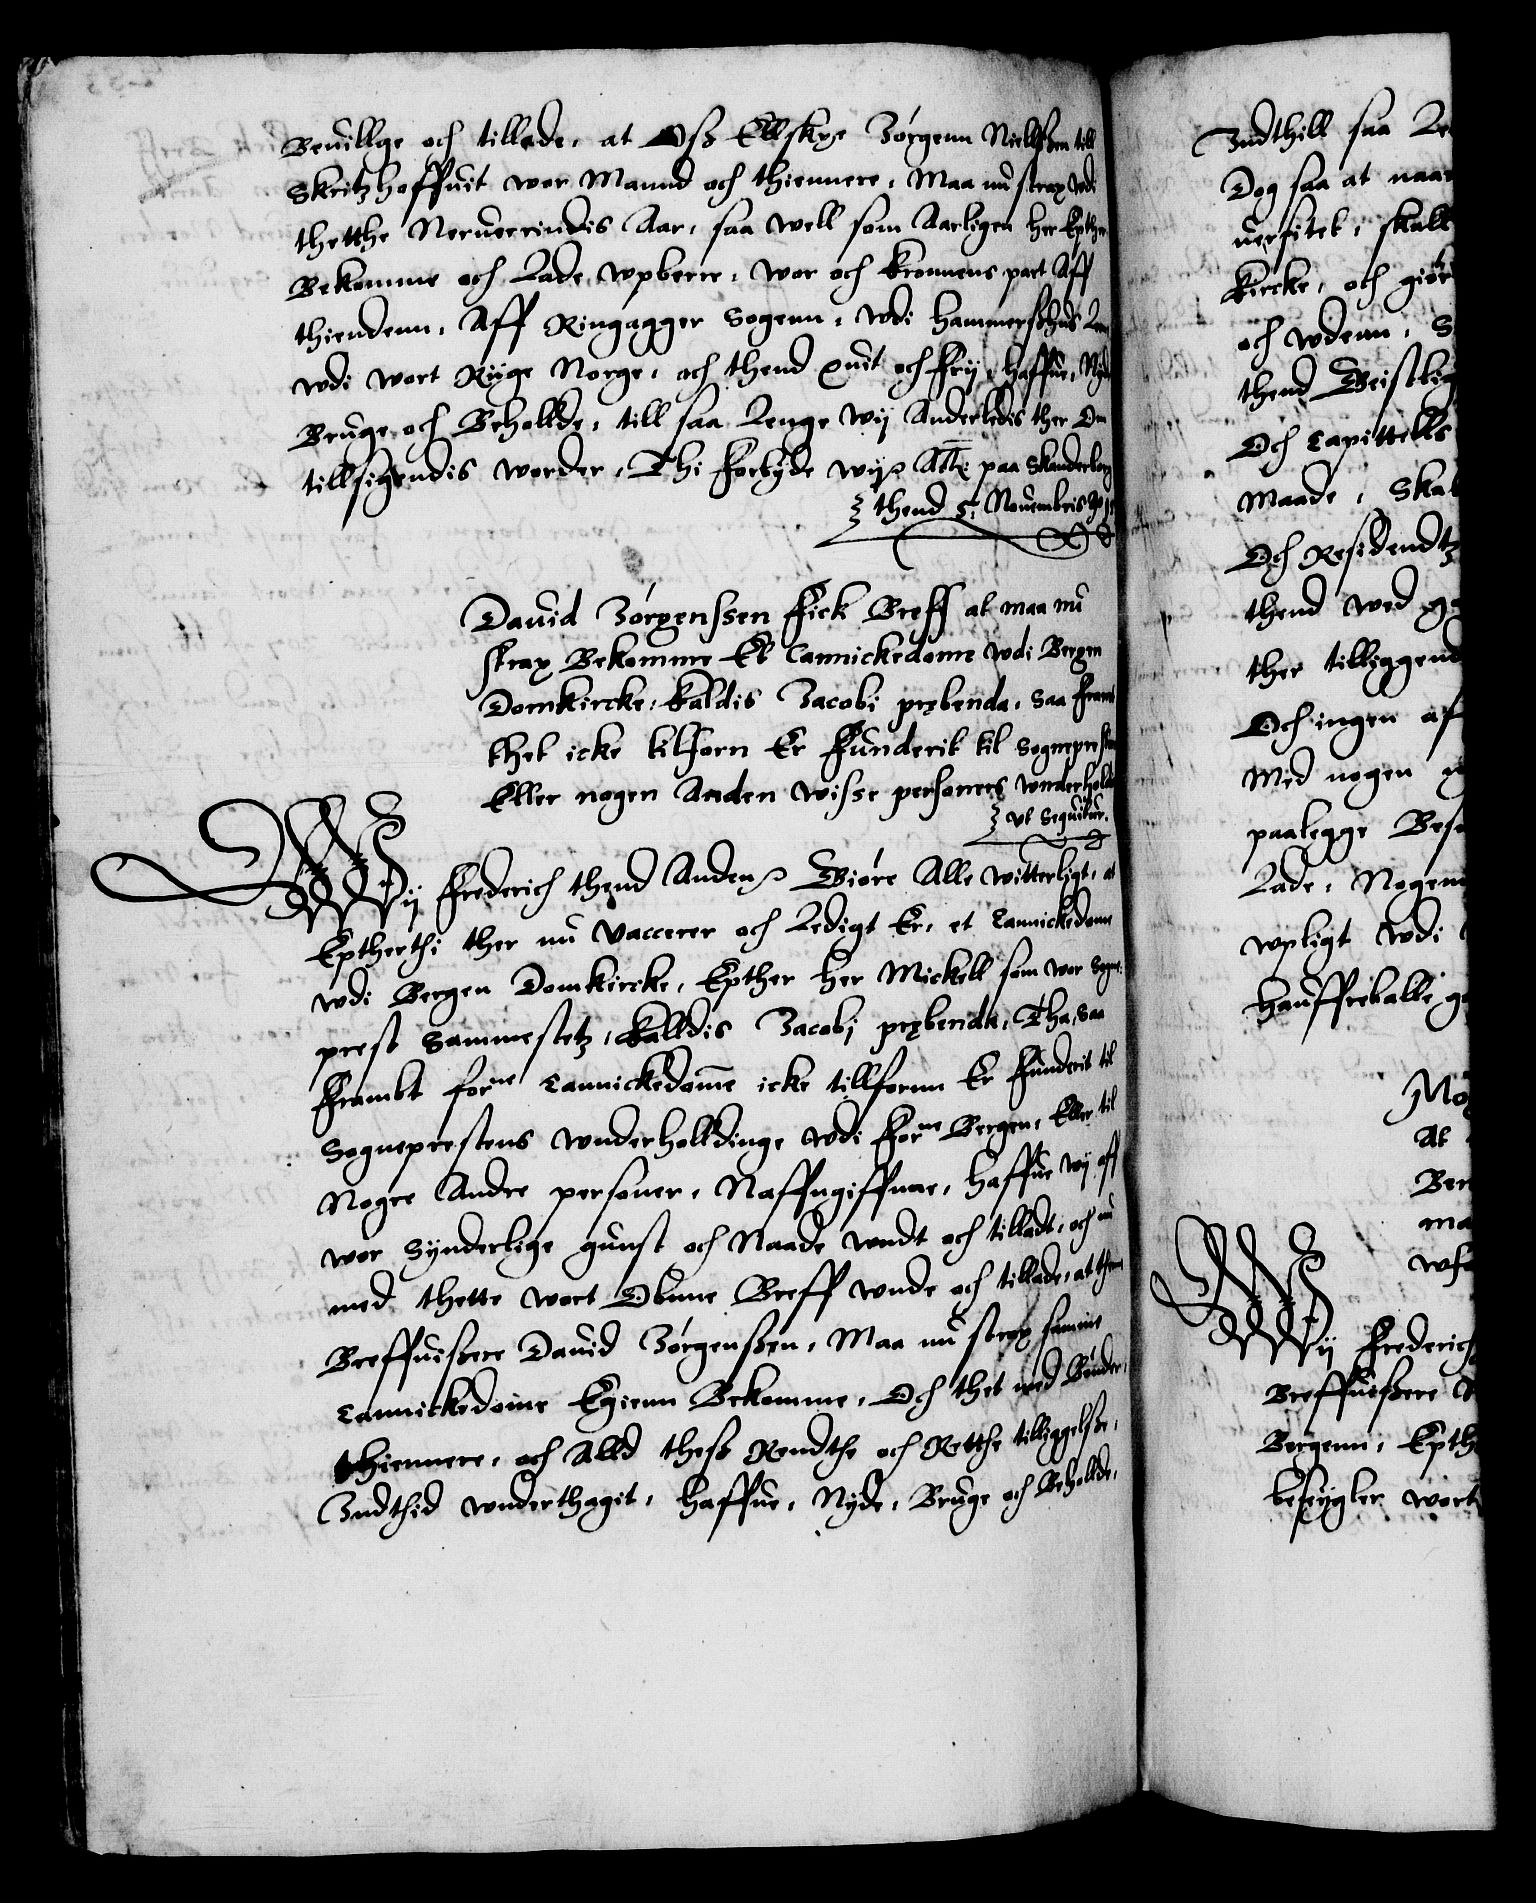 Beuillge och tillade, at Oss Ellskge Jörgenn Niellssen till
Skritzhoffuit wor Mannd och thiennere, Maa nu strax wdi
thetthe Neruerindis Aar, saa well som Aarligen her Epther
Bekomme och Lade wpberre, wor och Kronnens part Aff
thiendenn, Aff Ringagger Sogenn, wdi Hammershus Lenn
wdi wort Rige Norge, och thend quit och frij, haffue, Nyde
Bruge och Beholde, till saa Lenge wij Anderledis ther Om
tillsigendis worder, Thi forbyde wij Att: paa Skanderborg
thend 5: Novembris
Dauid Jörgenssen fick Breff at maa nu
strax Bekomme Et Cannickedome wdi Bergen
Domkircke, Kaldis Jacobi prębenda, saa framt
thet icke tilforn Er funderit til Sogneprestens
Eller nogen Anden wisse personers wnderhold
vt Sequitur.
Wij Frederich thend Anden Giøre Alle witterligt, at
Eptherthi ther nu Vaccerer och Ledigt Er, et Cannickedome
wdi Bergen Domkircke, Epther her Mickell som wor Sogne
prest Sammestetz, Kalldis Jacobj prębenda, Tha, saa
frambt forne Cannickedome icke tillfornn Er funderit til
Sogneprestens wnderholldinge wdi forne Bergen, Eller til
Nogre Andre personer, Naffngiffnne, haffue wij aff
wor Synderlige gunst och Naade wndt och tilladt, och nu
med thette wort Obnne Breff wnde och tillade, at thenne
Breffuissere Dauid Jörgenssen, Maa nu strax samme
Cannickedome Egienn Bekomme, Och thet med Bönder,
thiennere, och Alld thess Rendthe och Retthe tilliggelsse,
Indthid wnderthagit, haffue, Nyde, Bruge och Beholde,
Indthill saa
Dog saa at naar
uersitet, skall
Kircke, och giör
och wdenn,
thend Geistlig
Och Capittells
Maade, Skal
Och Residendtz
thend wed
ther tilliggend
Och ingen af
Med nogen
paalegge Bes
Lade, Nogenn
wpligt wdi
hauffreballe
At
Ber
ma
Wij Frederich
Breffuissere
Bergenn, Epth
beseygler wort